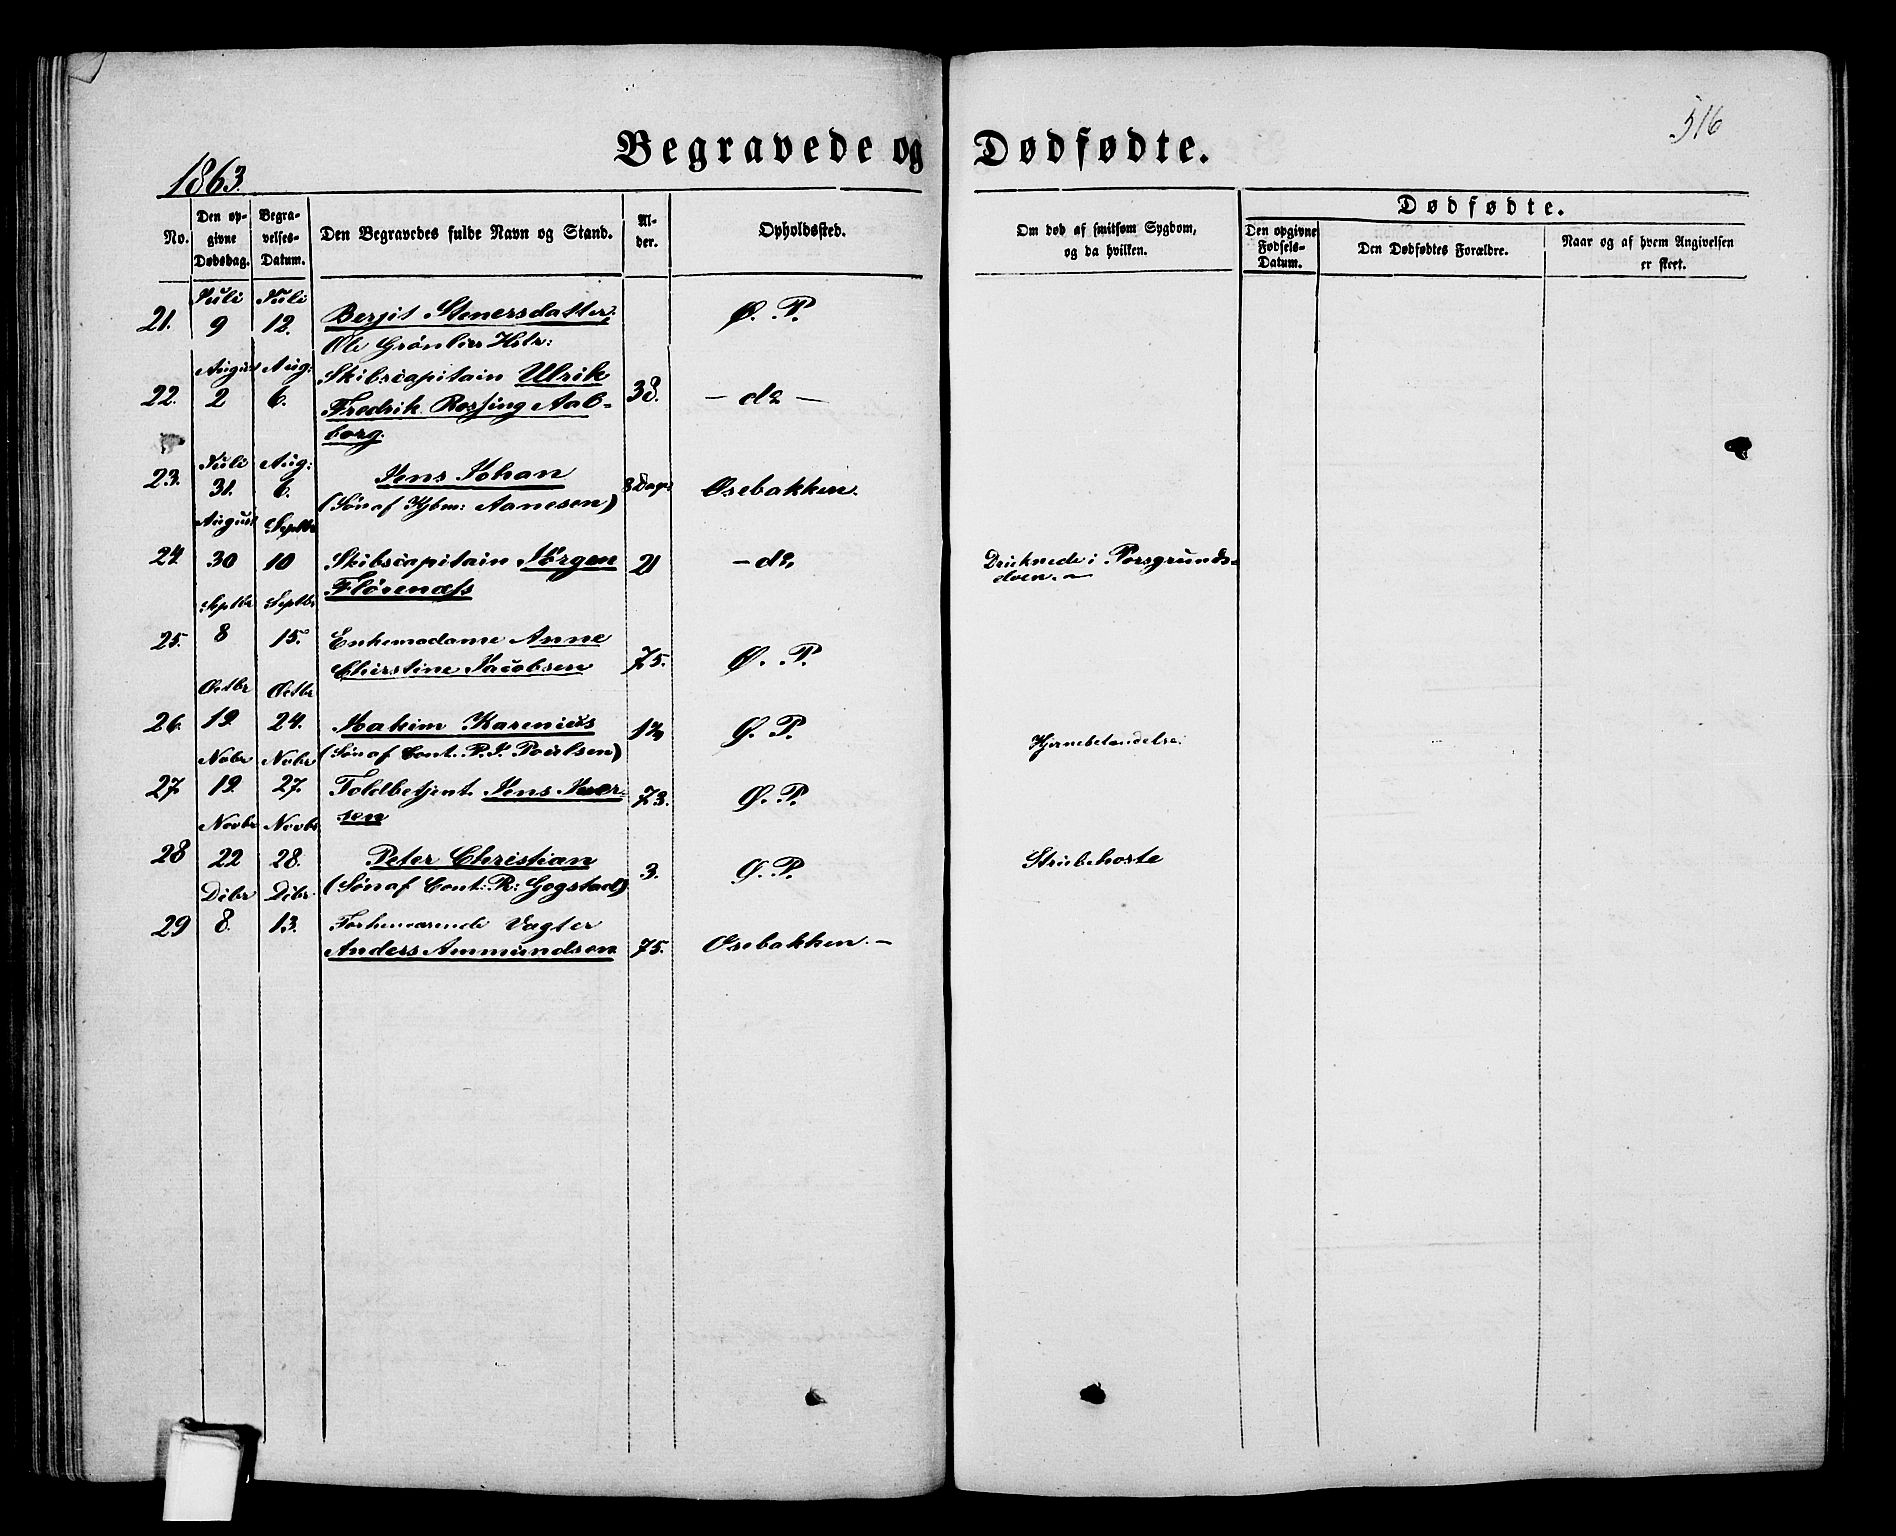 516
Begravede og Dødfødte.
1863.
No. Den opgivne Dødsdag. Begravelses-Datum. Den Begravedes fulde Navn og Stand. Alder. Opholdssted. Om død af smitsom Sygdom, og da hvilken. Dødfødte.
Den opgivne Fødsels-Datum. Den Dødfødtes Forældre. Naar og af hvem Angivelsen er skeet.
Juli Juli
21. 9 12. Berjit Stenersdatter, Ø. P.
Ole Grønlies Hstr:
August Aug:
Skibscapitain Ulrik
22. 2 6. Fredrik Rossing Aal- 38. — do —
borg.
Juli Aug:
23. 31. 6. Jens Johan 8 Dage Osebakken.
(Søn af Kjbm: Aanesen)
August Septbr
24 30 10 Skibscapitain Jørgen 21 — do Druknede i Porsgrunds-
Flørenæss elven. —
Septbr Septbr
25. 8 15. Enkemadame Anne
Chirstine Jacobsen 75. Ø. P.
Octbr Octbr
26. 19. 24. Joakim Karenius Ø. P. Hjernebetændelse.
(Søn af Cont. P. J. Poulsen)
Nobr Nobr
27. 19. 27. Toldbetjent Jens Iver- 73. Ø. P.
sen
Novbr Novbr
28 22 28. Peter Christian 3. Ø. P. Strubehoste
(Søn af Cont: R: Gogstad)
Dcbr Dcbr
29 8. 13. Forhenværende Vagter
Anders Ammundsen 75. Osebakken. —